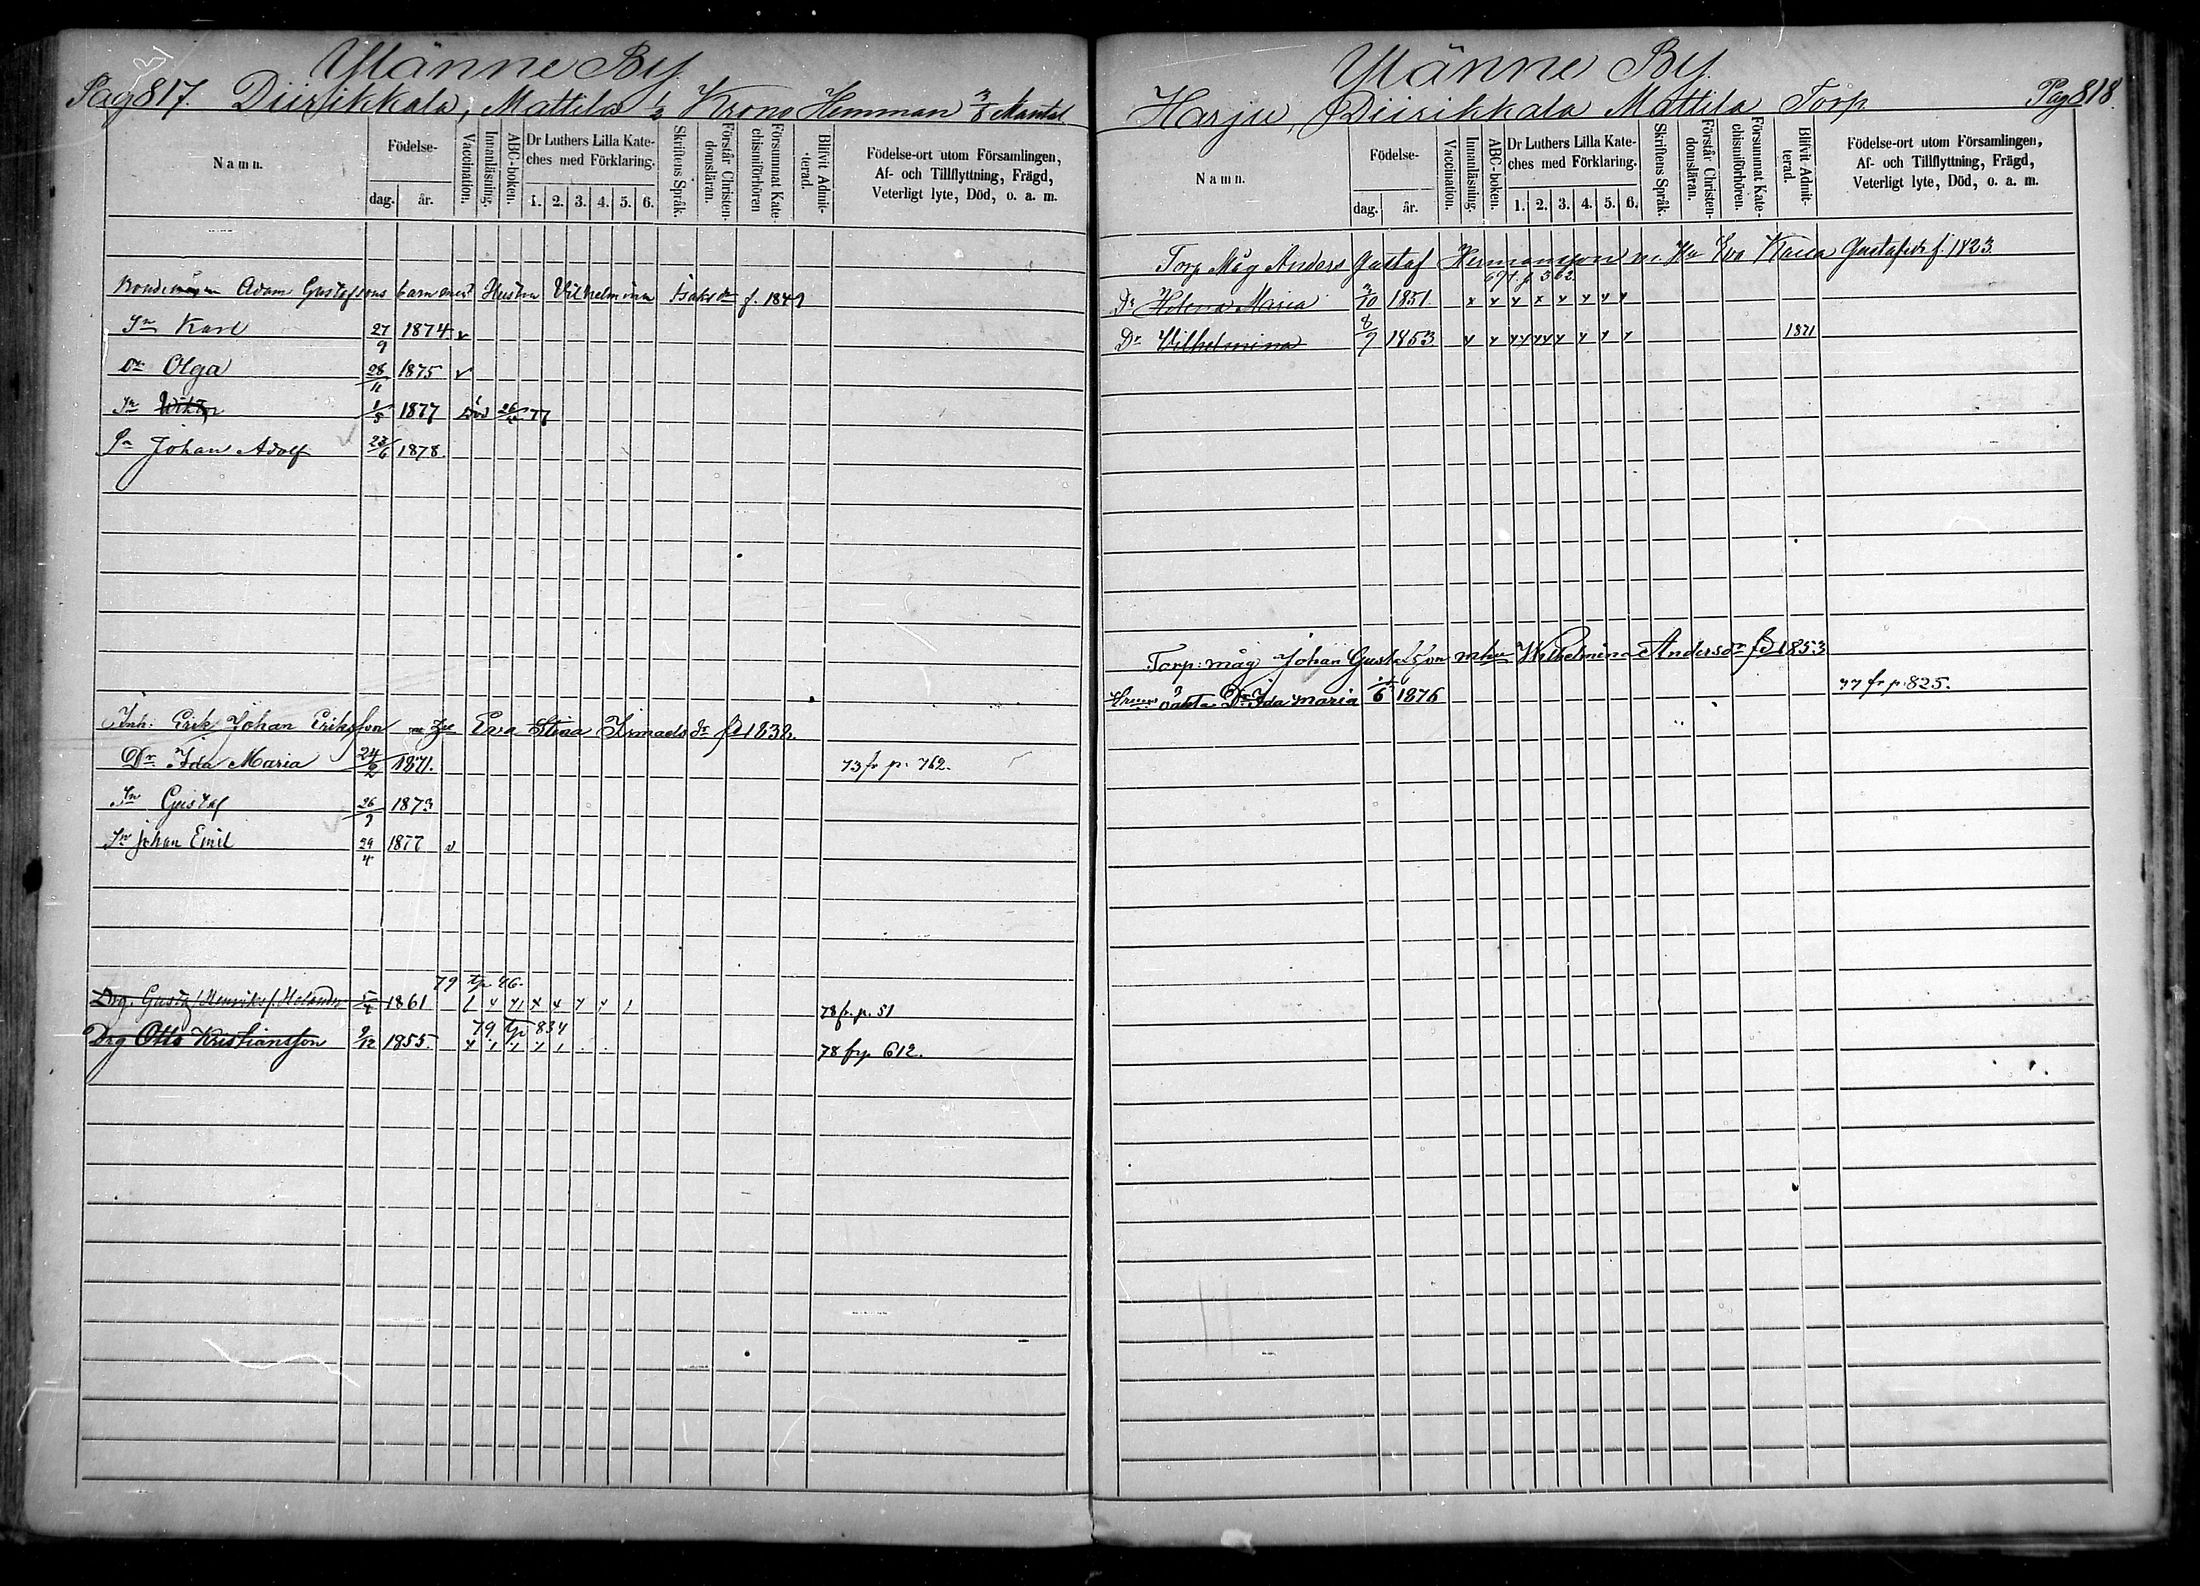 Ylänne By.
Pag 817. Diirikkala, Mattila 1/2 Krono Hemman 3/8 Mantal
Namn.
Födelse-
dag. år.
Vaccination.
Innanläsning.
ABC-boken.
Dr Luthers Lilla Kate-
ches med Förklaring.
1. 2. 3. 4. 5. 6.
Skriftens Språk.
Förstår Christen-
domsläran.
Försummat Kate-
chismiförhören
Blifvit Admit-
terad.
Födelse-ort utom Församlingen,
Af- och Tillflyttning, Frägd,
Veterligt lyte, Död, o. a. m.
Bonde Adam Gustafssons barn med Hustru Vilhelmina Isaks dr f. 1849
Sn Karl 27/9 1874 v
Dr Olga 28/11 1875 v
Sn Wiktor 1/5 1877 död 77
Sn Johan Adolf 23/6 1878.
Inh: Erik Johan Eriksson m Hu Eva Stina Ismaels dr fd 1838.
Dr Ida Maria 24/2 1871. 73 fr p. 762.
Sn Gustaf 26/9 1873
Sn johan Emil 29/4 1877 v
79 tp 46.
Drg. Gustaf Henriks s. Helander 1861 78 fr. p. 51
79 tp 834
Drg Otto Kristiansson 9/12 1855. 78 fr p 612.
Ylänne By.
Harju, Diirikkala Mattila Torp Pag 818.
Namn.
Födelse-
dag. år.
Vaccination.
Innanläsning.
ABC-boken.
Dr Luthers Lilla Kate-
ches med Förklaring.
1. 2. 3. 4. 5. 6.
Skriftens Språk.
Förstår Christen-
domsläran.
Försummat Kate-
chismiförhören.
Blifvit Admit-
terad.
Födelse-ort utom Församlingen,
Af- och Tillflyttning, Frägd,
Veterligt lyte, Död, o. a. m.
Torp Måg Anders Gustaf Hermansson m. Hu Eva Kaisa Gustafsdr f. 1823
Dr Helena Maria 3/10 1851. x x x x x x x x
Dr Vilhelmina 8/9 1853 1871
Torp: måg Johan Gustafsson m hu Wilhelmina Andersdr fd 1853
Hennes oäkta Dr Ida Maria 1876 77 fr p. 825.